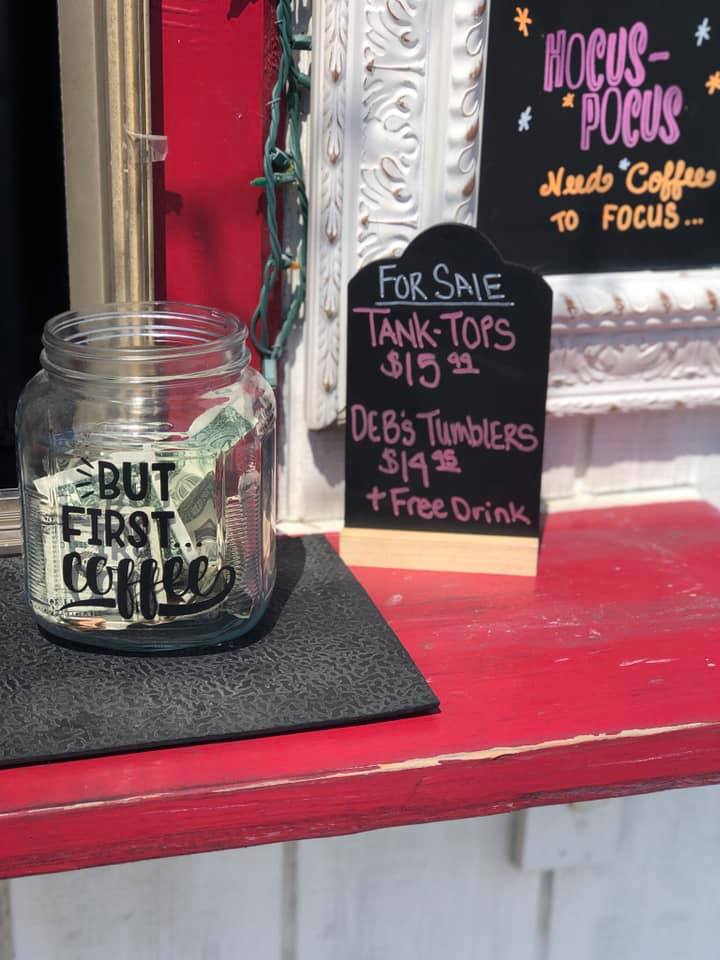 HOCUS-
POCUS
Need Coffee
TO FOCUS...
FOR SALE
TANK-TOPS
$15 99
DEB'S TUMBLERS
$14 95
+ Free Drink
BUT
FIRST...
coffee